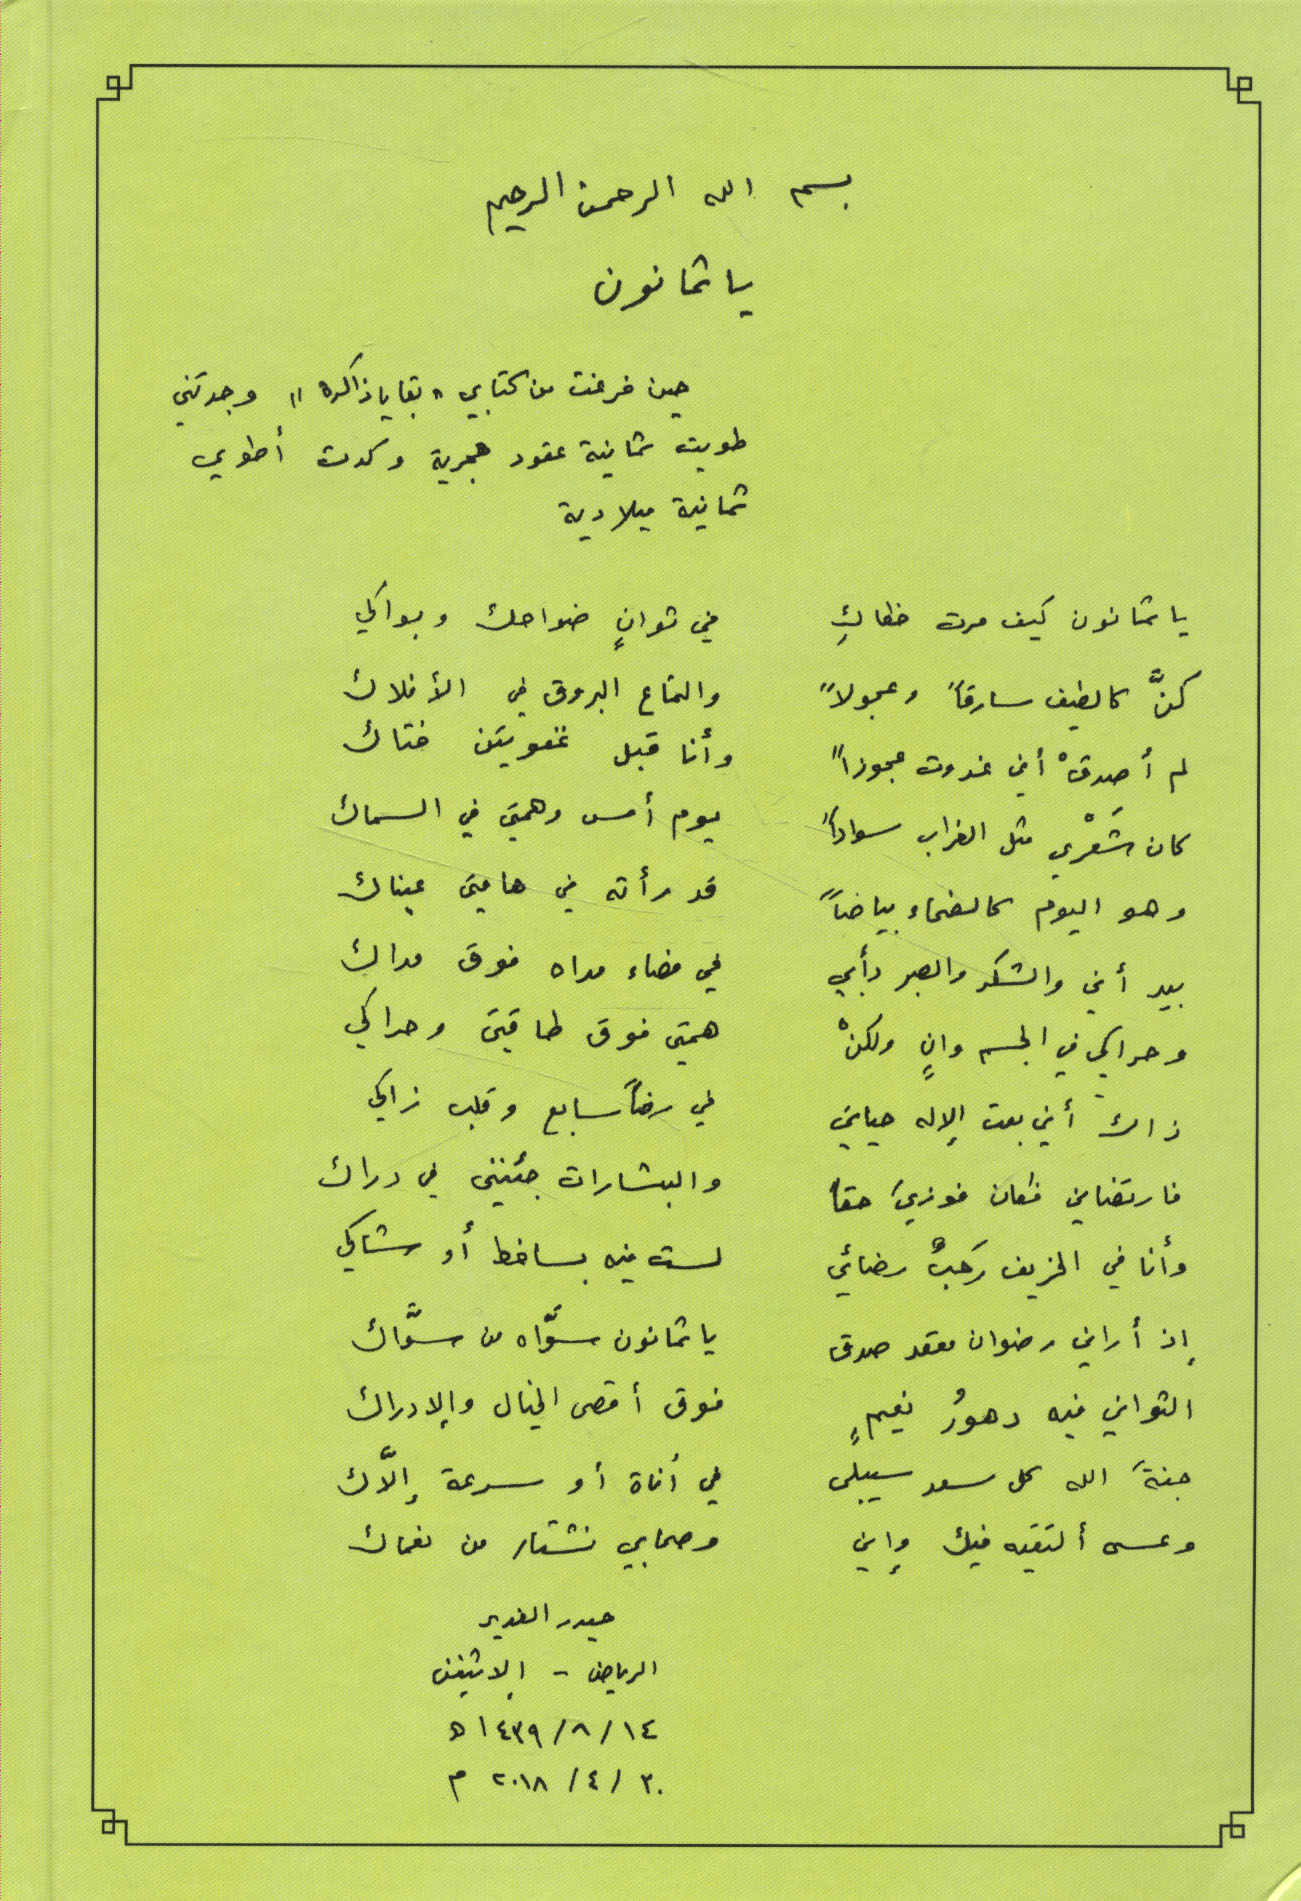 بسم الله الرحمن الرحيم
يا ثمانون
حين فرغت من كتابي "بقايا ذاكرة" وجدتني
طويت ثمانية عقود هجرية وكدت أطوي
ثمانية ميلادية
يا ثمانون كيف مرت خطاكِ في ثوانٍ ضواحك وبواكي
كنَّ كالطيف سارقاً وعجولاً والتماع البروق في الأفلاك
لم أصدقْ أني غدوت عجوزاً وأنا قبل غفوتين فتاك
كان شَعْري مثل الغراب سواداً يوم أمس وهمتي في السماك
وهو اليوم كالضحاء بياضاً قد رأته في هامتي عيناك
بيد أني والشكر والصبر دأبي في مضاء مداه فوق مداك
وحراكي في الجسم وانٍ ولكنْ همتي فوق طاقتي وحراكي
ذاك أني بعت الإله حياتي في رضاً سابع وقلب زاكي
فارتضاني فكان فوزيَ حقاً والبشارات جئنني في دراك
وأنا في الخريف رَحْبٌ رضائي لست فيه بساخط أو شاكي
إذ أراني رضوان مقعد صدق يا ثمانون سوَّاه من سوَّاك
الثواني فيه دهورُ نعيمٍ فوق أقصى الخيال والإدراك
جنةَ الله كل سعد سيبلى في أناة أو سرعة إلاَّك
وعسى ألتقيه فيك وإني وصحابي نشتار من نعماك
حيدر الغدير
الرياض - الإثنين
١٤/٨/١٤٣٩ هـ
٣٠/٤/٢٠١٨ م